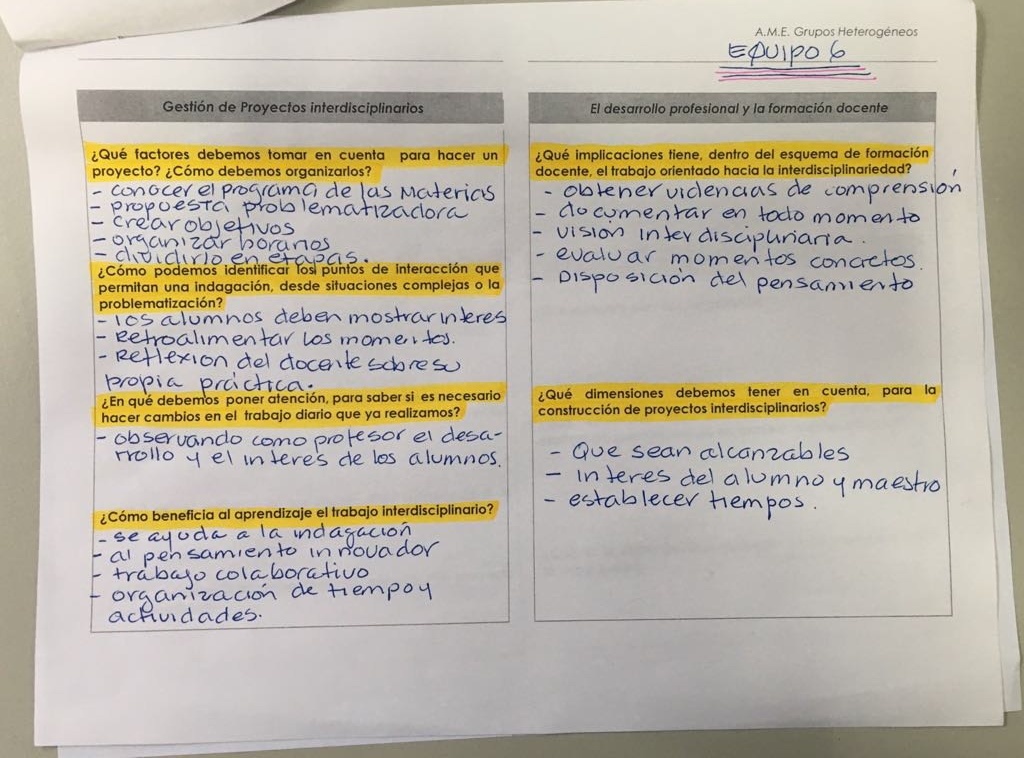 A.M.E. Grupos Heterogéneos
EQUIPO 6
Gestión de Proyectos interdisciplinarios
¿Qué factores debemos tomar en cuenta para hacer un
proyecto? ¿Cómo debemos organizarlos?
- conocer el programa de las Materias
- propuesta problematizadora
- crear objetivos
- organizar horarios
- dividirlo en etapas.
¿Cómo podemos identificar los puntos de interacción que
permitan una indagación, desde situaciones complejas o la
problematización?
- los alumnos deben mostrar interes
- Retroalimentar los momentos.
- Reflexion del docente sobre su
propia práctica.
¿En qué debemos poner atención, para saber si es necesario
hacer cambios en el trabajo diario que ya realizamos?
- observando como profesor el desa-
rrollo y el interes de los alumnos.
¿Cómo beneficia al aprendizaje el trabajo interdisciplinario?
- se ayuda a la indagación
- al pensamiento innovador
- trabajo colaborativo
- organización de tiempo y
actividades.
El desarrollo profesional y la formación docente
¿Qué implicaciones tiene, dentro del esquema de formación
docente, el trabajo orientado hacia la interdisciplinariedad?
- obtener videncias de comprensión
- documentar en todo momento
- visión interdisciplinaria.
- evaluar momentos concretos.
- Disposición del pensamiento
¿Qué dimensiones debemos tener en cuenta, para la
construcción de proyectos interdisciplinarios?
- Que sean alcanzables
- interes del alumno y maestro
- establecer tiempos.